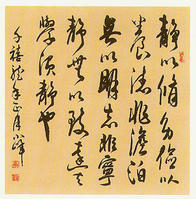 静以修身儉以
養德非澹泊
無以明志非寧
静無以致遠夫
學須静也
千禧龍年正月